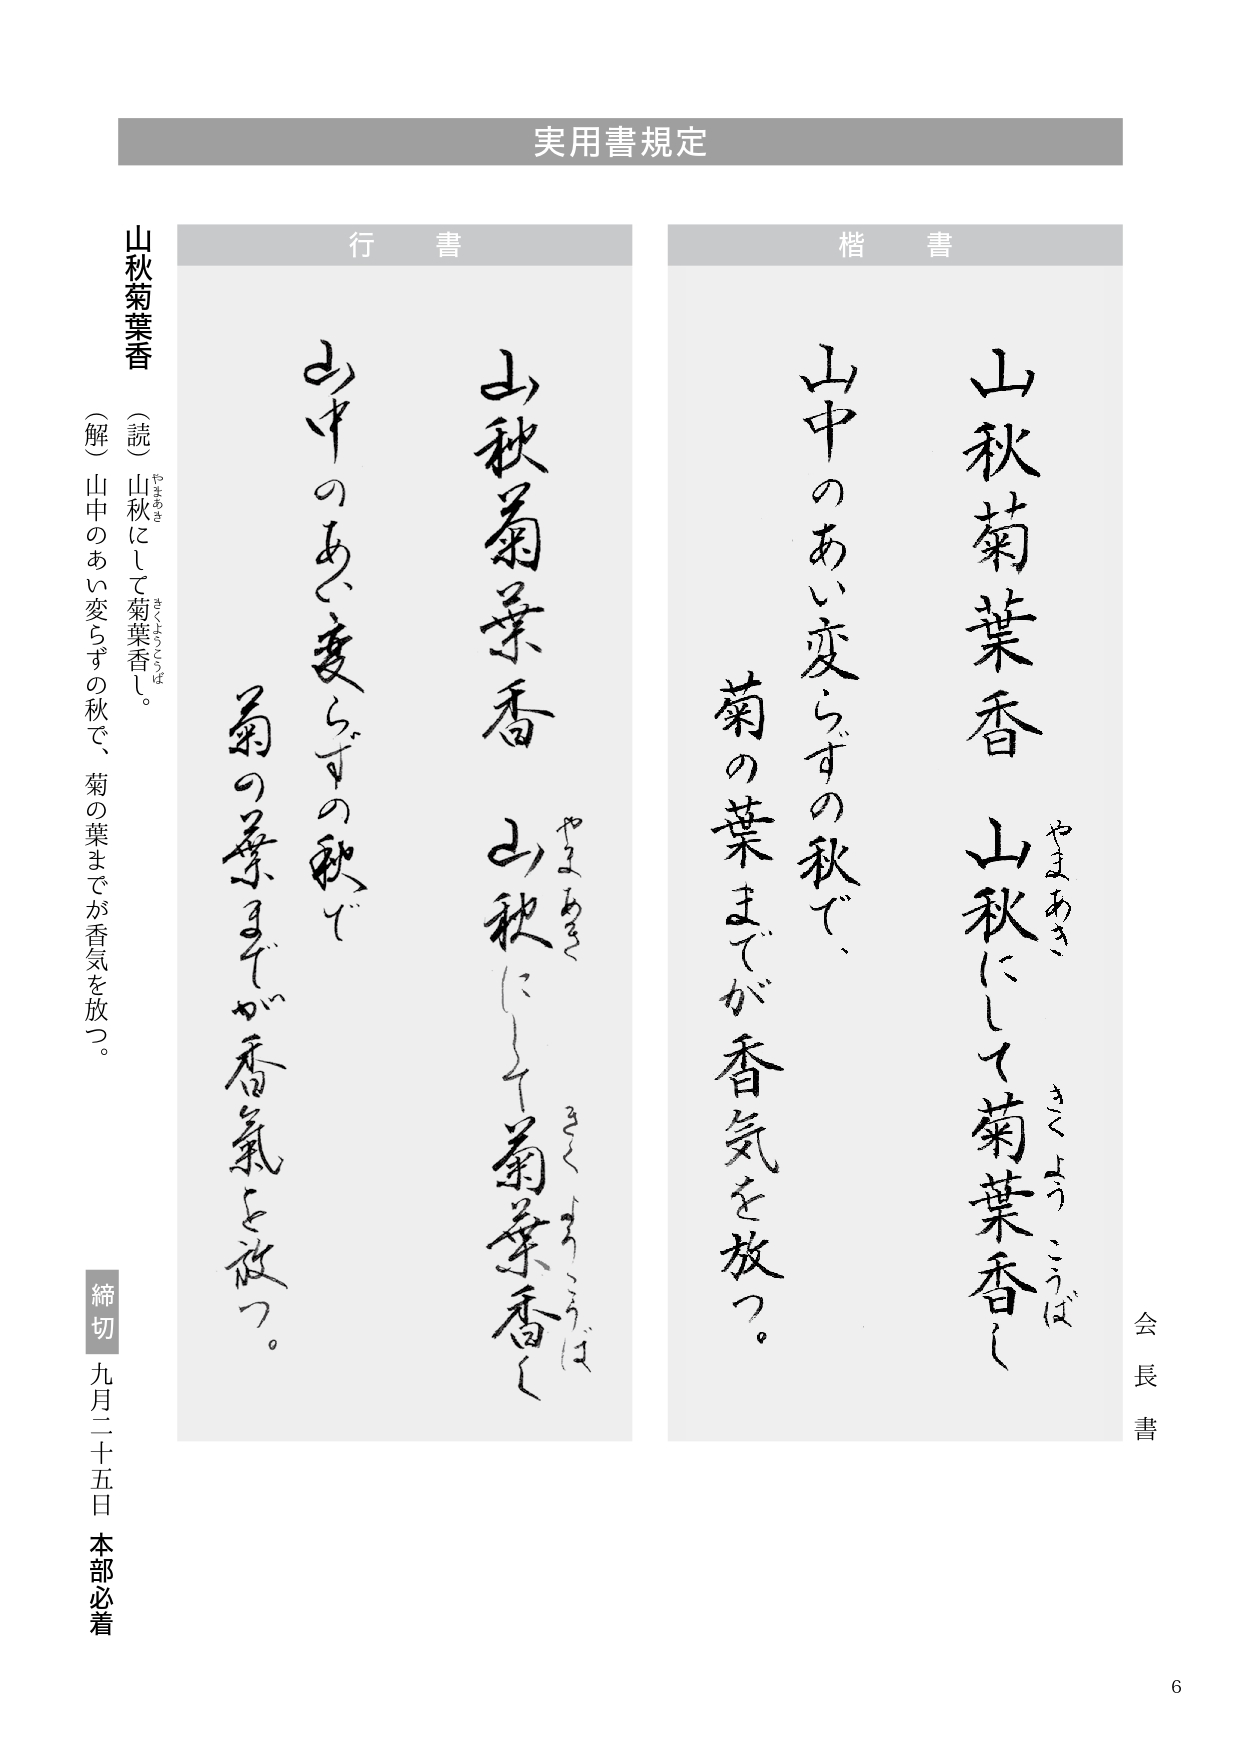 実用書規定
会長書
楷書
山秋菊葉香 山秋にして菊葉香し
やまあき きくようこうば
山中のあい変らずの秋で、
菊の葉までが香気を放つ。
行書
山秋菊葉香 山秋にして菊葉香し
やまあき きくようこうば
山中のあい変らずの秋で
菊の葉までが香氣を放つ。
山秋菊葉香
(読)山秋にして菊葉香し。
やまあき きくようこうば
(解)山中のあい変らずの秋で、菊の葉までが香気を放つ。
締切 九月二十五日 本部必着
6